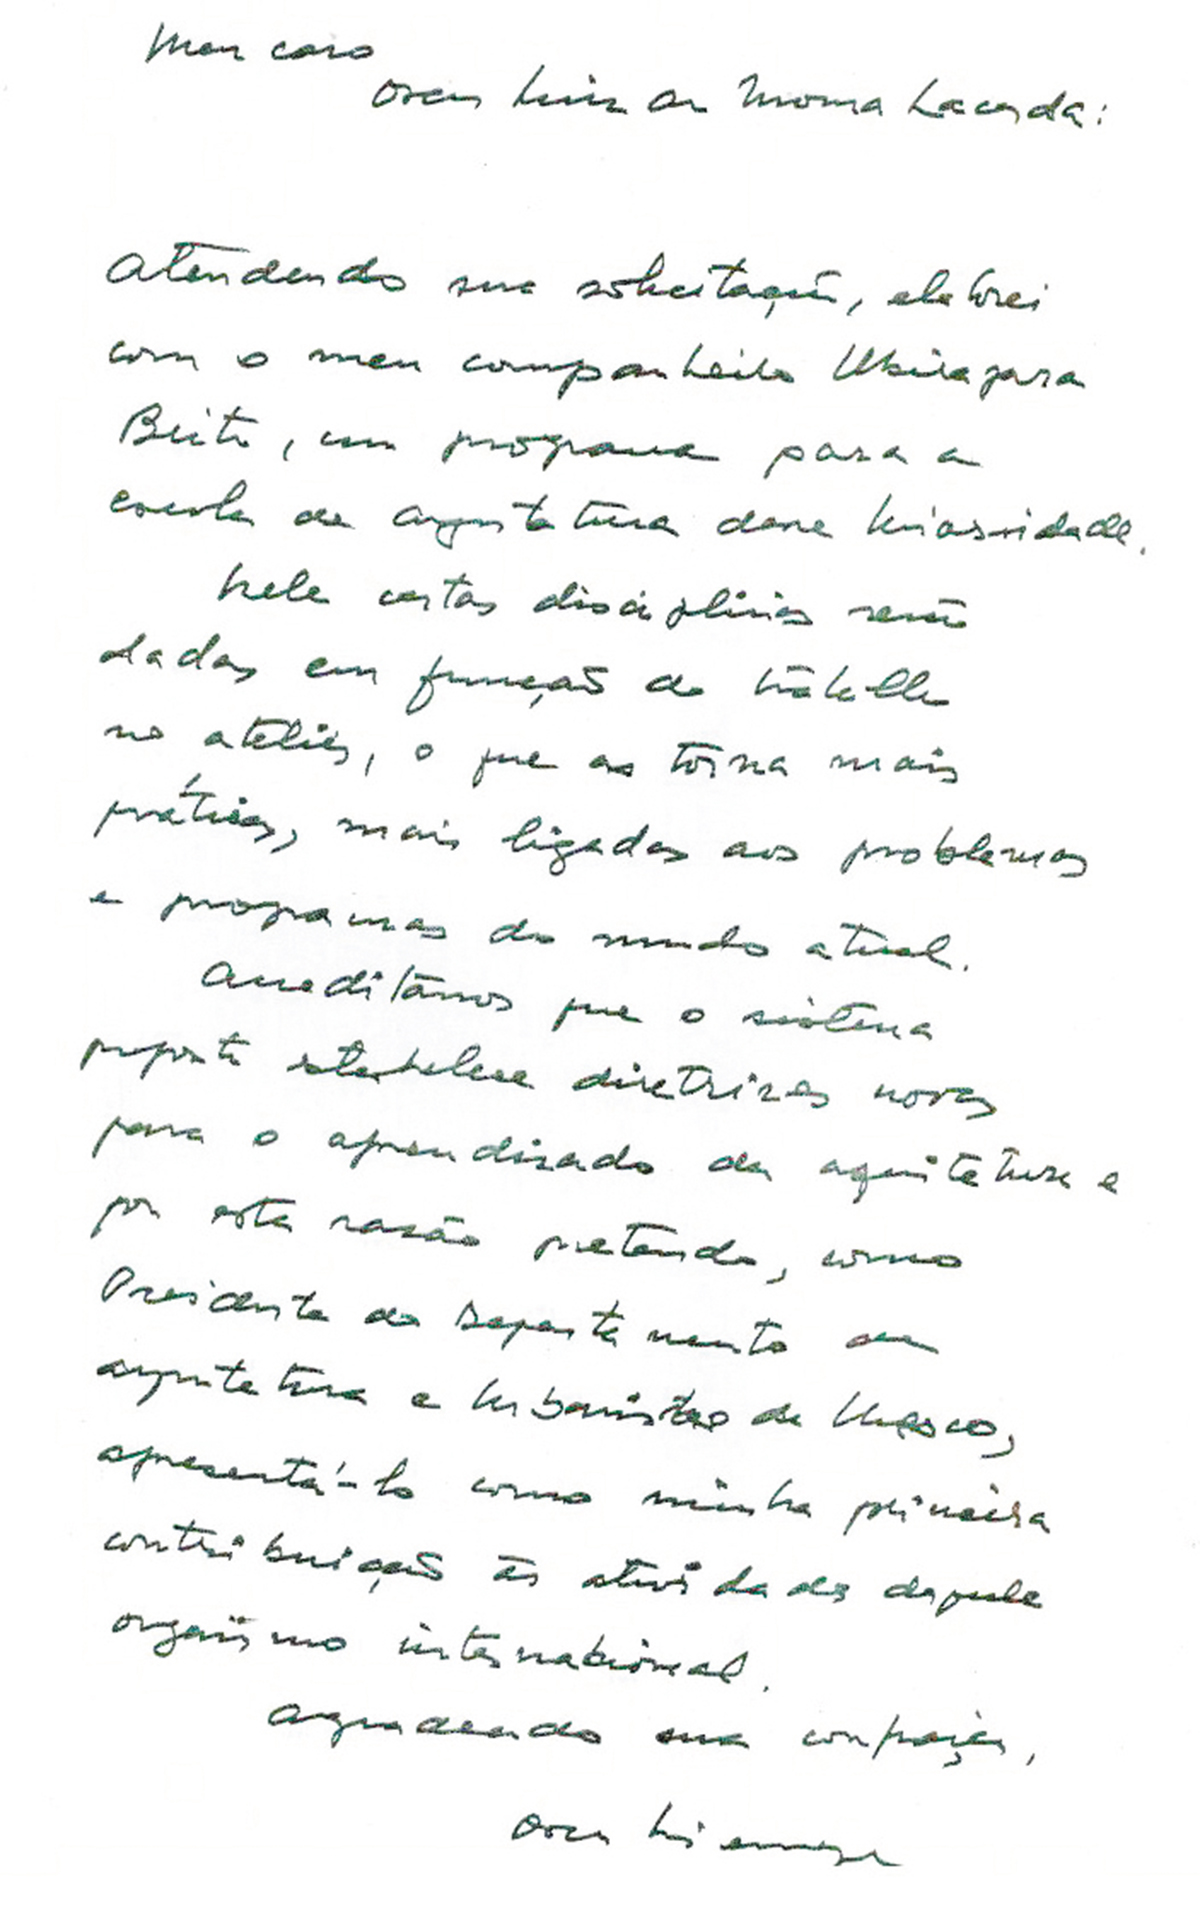 Meu caro
Oscar Luiz de Moura Lacerda:
Atendendo sua solicitação, elaborei
com o meu companheiro Ubirajara
Brito, um programa para a
escola de arquitetura dessa Universidade.
Nele certas disciplinas serão
dadas em função do trabalho
no ateliér, o que as torna mais
práticas, mais ligadas aos problemas
e programas do mundo atual.
Acreditamos que o sistema
proposto estabelece diretrizes novas
para o aprendizado da arquitetura e
por esta razão pretendo, como
Presidente do Departamento de
arquitetura e Urbanismo da Unesco,
apresentá-lo como minha primeira
contribuição às atividades daquele
organismo internacional.
Agradecendo sua confiança,
Oscar Niemeyer